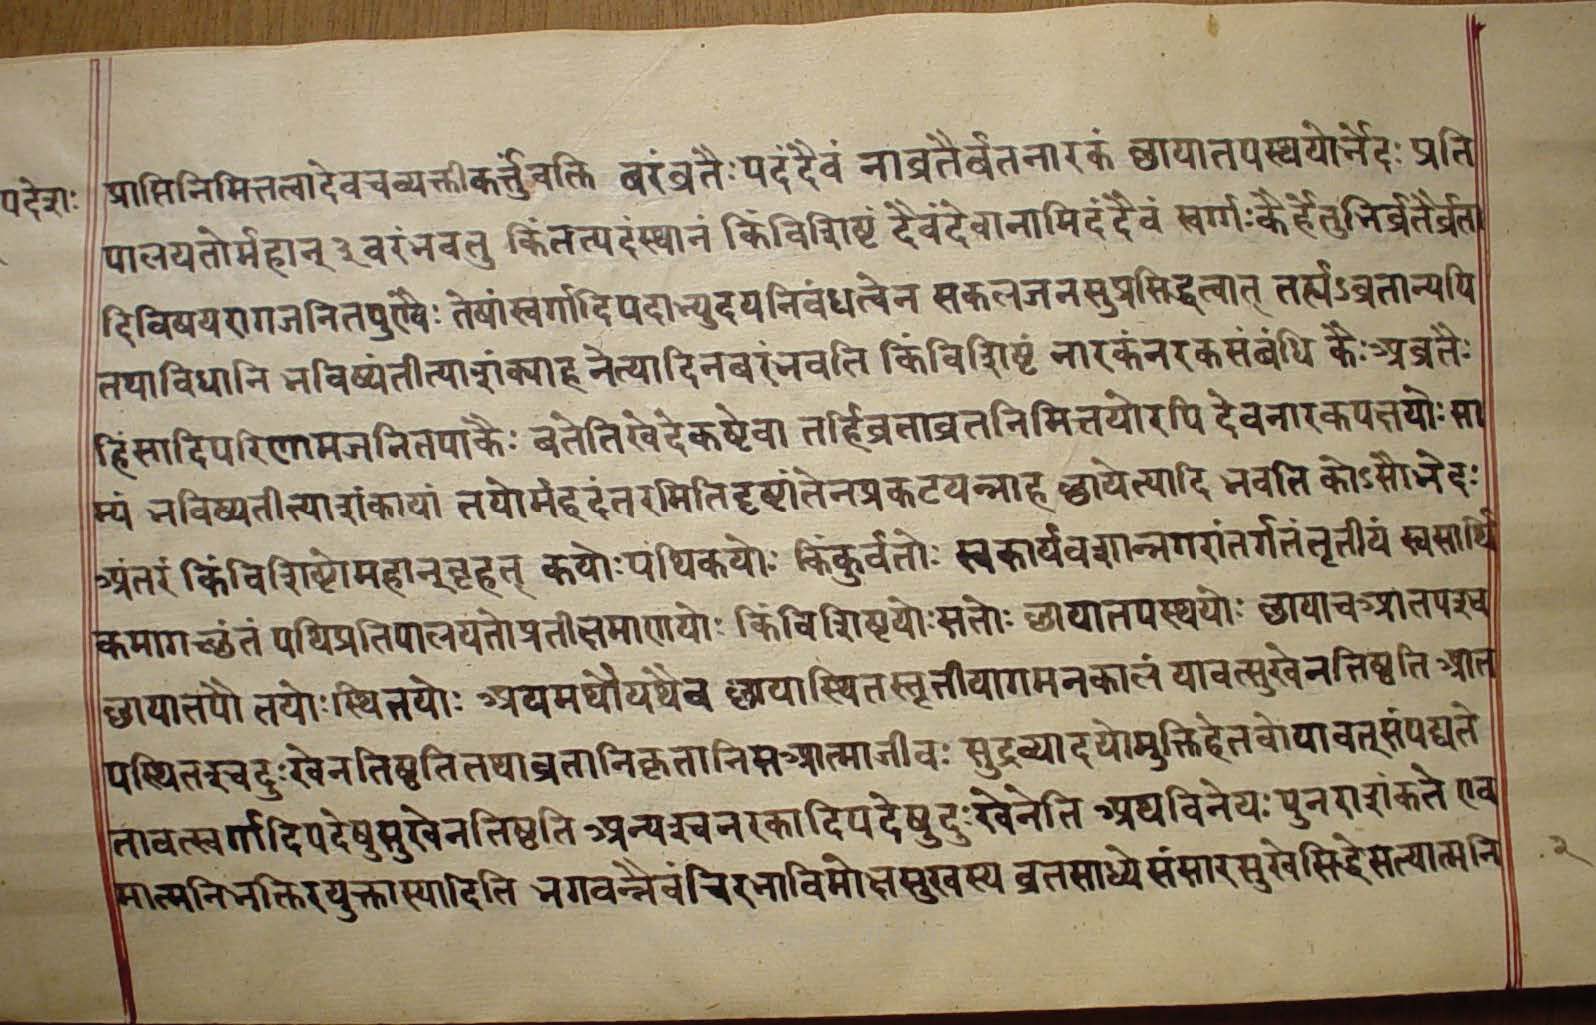 पदेशः
प्राप्तिनिमित्तत्वादेवचव्यक्तीकर्त्तुंवक्ति वरंव्रतैःपदंदैवं नाव्रतैर्बतनारकं छायातपस्थयोर्भेदः प्रति
पालयतोर्महान् ३ वरंभवतु किंतत्पदंस्थानं किंविशिष्टं दैवंदेवानामिदंदैवं स्वर्ग्गःकैर्हेतुभिर्व्रतैर्व्रता
दिविषयरागजनितपुण्यैः तेषांस्वर्गादिपदाभ्युदयनिबंधत्वेन सकलजनसुप्रसिद्धत्वात् तर्ह्यऽव्रतान्यपि
तथाविधानि भविष्यंतीत्याशंक्याह नेत्यादिनवरंभवति किंविशिष्टं नारकंनरकसंबंधि कैःअव्रतैः
हिंसादिपरिणामजनितपाकैः बतेतिखेदेकष्टेवा तर्हिव्रताव्रतनिमित्तयोरपि देवनारकपक्षयोःसा
म्यं भविष्यतीत्याशंकायां तयोर्महदंतरमितिदृष्टांतेनप्रकटयन्नाह छायेत्यादि भवति कोऽसौभेदः
अंतरं किंविशिष्टोमहान्बृहत् कयोःपंथिकयोः किंकुर्वतोः स्वकार्यवशान्नगरांतर्गतंतृतीयं स्वसार्थि
कमागच्छंतं पथिप्रतिपालयतोप्रतीक्षमाणयोः किंविशिष्टयोःसतोः छायातपस्थयोः छायाचआतपश्च
छायातपौ तयोःस्थितयोः अयमर्थोयथैव छायास्थितस्तृतीयागमनकालं यावत्सुखेनतिष्ठति आत
पस्थितश्चदुःखेनतिष्ठतितथाव्रतानिकृतानिसआत्माजीवः सुद्रव्यादयोमुक्तिहेतवोयावत्संपद्यते
तावत्स्वर्गादिपदेषुसुखेनतिष्ठति अन्यश्चनरकादिपदेषुदुःखेनेति अथविनेयःपुनराशंकते एव
मात्मनिभक्तिरयुक्तास्यादिति भगवन्नैवंचिरभाविमोक्षसुखस्य व्रतसाध्येसंसारसुखेसिद्धेसत्यात्मनि
२